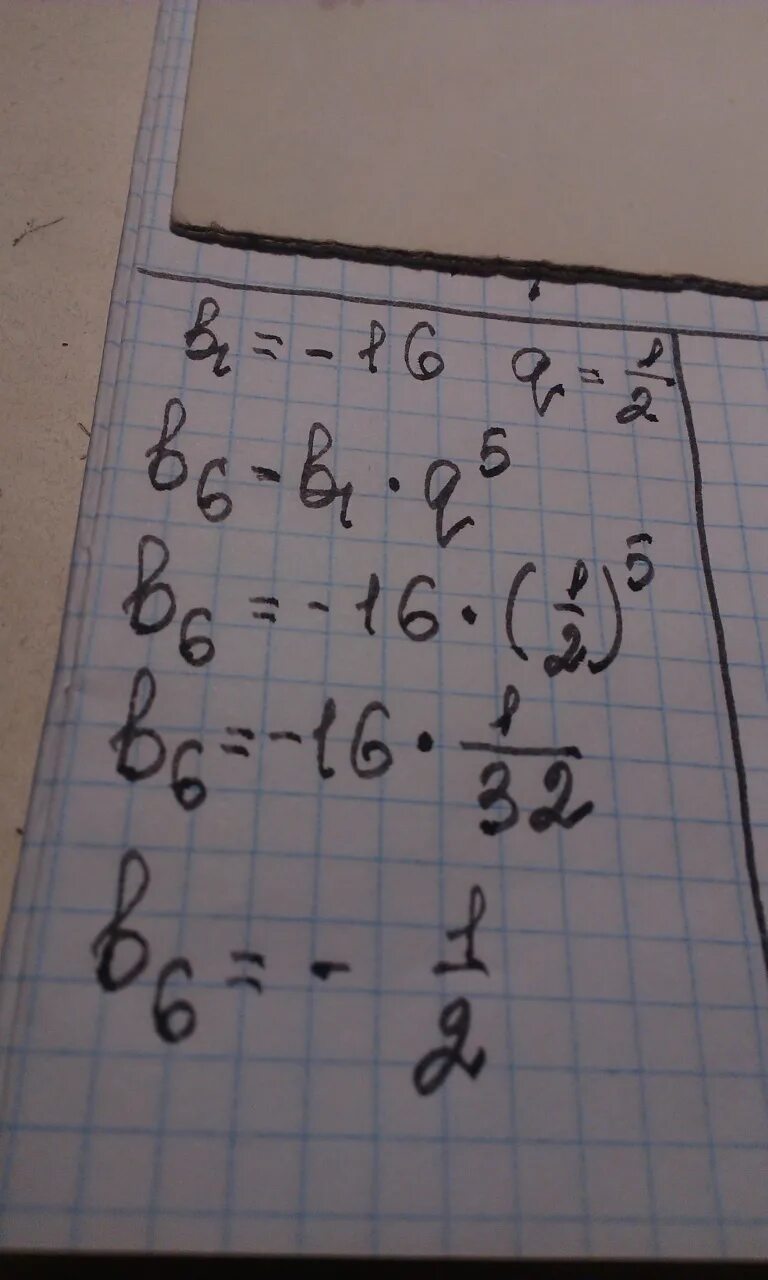 b₁ = -16 q = 1/2
b₆ = b₁ · q⁵
b₆ = -16 · (1/2)⁵
b₆ = -16 · 1/32
b₆ = - 1/2